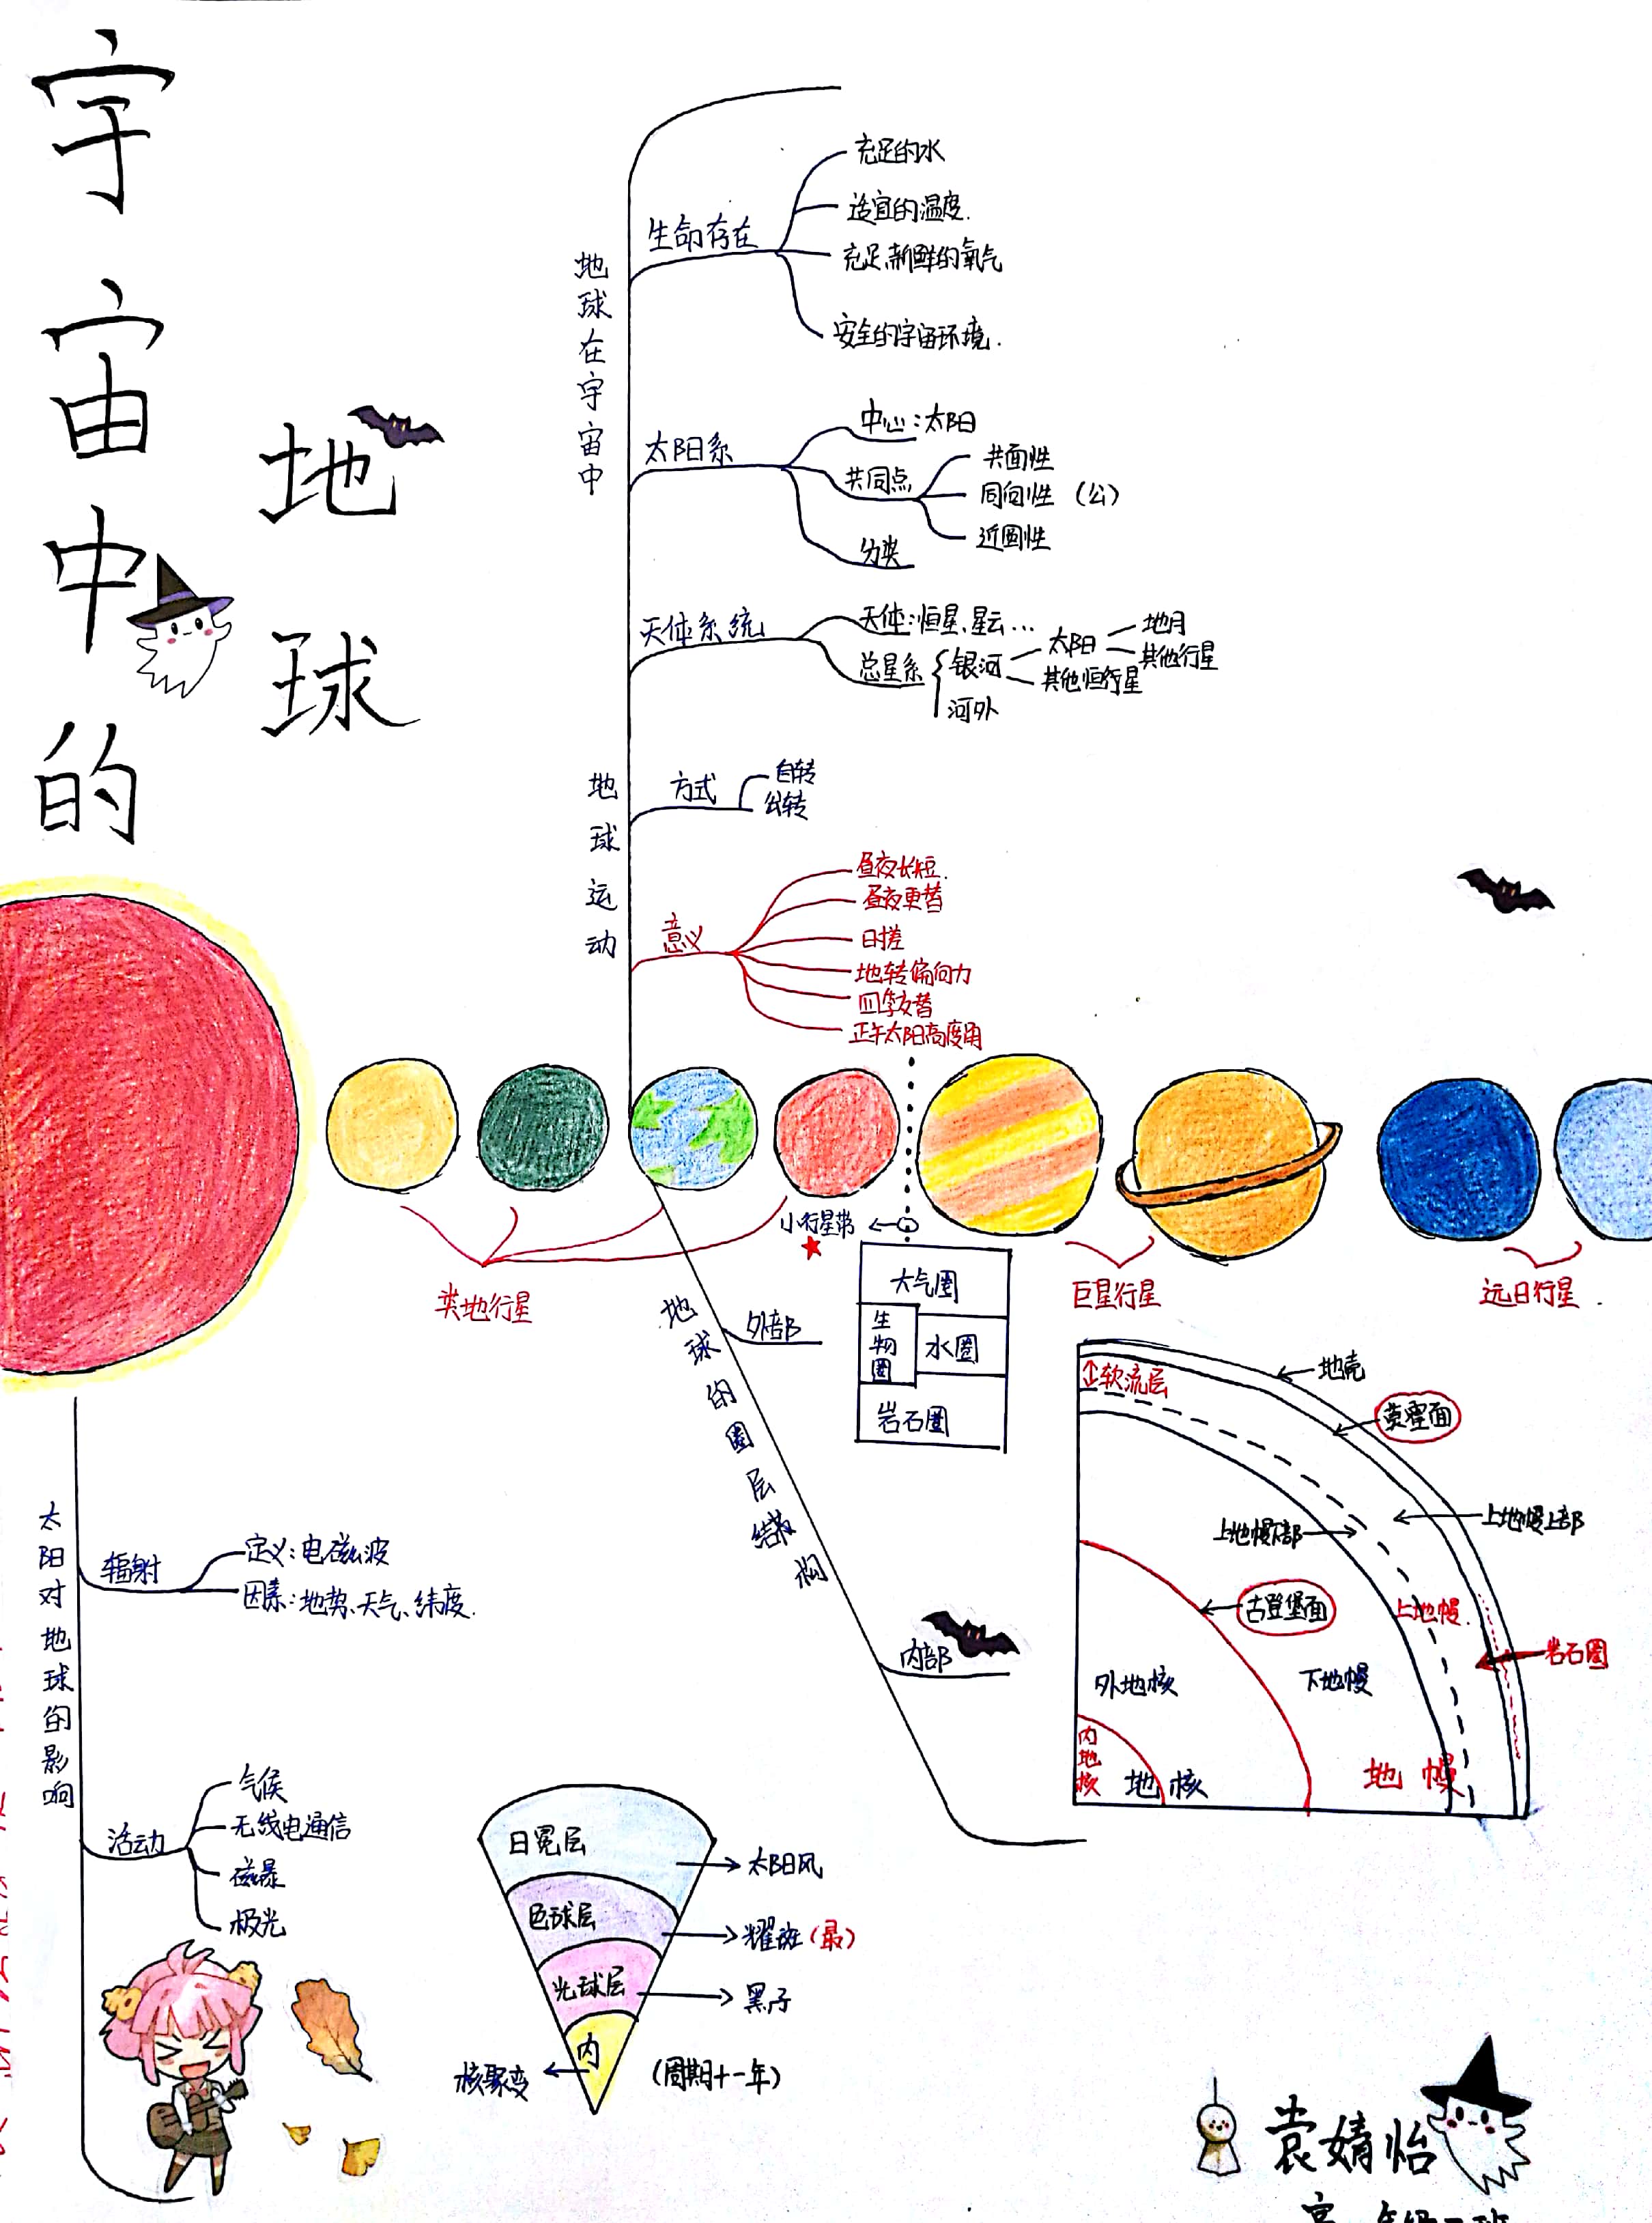 宇宙中的
地球
地球在宇宙中
生命存在
充足的水
适宜的温度.
充足、新鲜的氧气
安全的宇宙环境.
太阳系
中心:太阳
共同点
共面性
同向性 (公)
近圆性
分类
天体系统
天体:恒星、星云…
总星系
银河
太阳
地月
其他行星
其他恒行星
河外
地球运动
方式
自转
公转
意义
昼夜长短.
昼夜更替
日差
地转偏向力
四季交替
正午太阳高度角
小行星带
类地行星
巨星行星
远日行星
地球的圈层结构
外部
大气圈
生物圈
水圈
岩石圈
内部
地壳
软流层
莫霍面
上地幔上部
上地幔下部
古登堡面
上地幔.
岩石圈
外地核
下地幔
内地核
地核
地幔
太阳对地球的影响
辐射
定义:电磁波
因素:地势、天气、纬度.
活动
气候
无线电通信
磁暴
极光
日冕层
太阳风
色球层
耀斑(最)
光球层
黑子
内
核聚变
(周期十一年)
袁婧怡